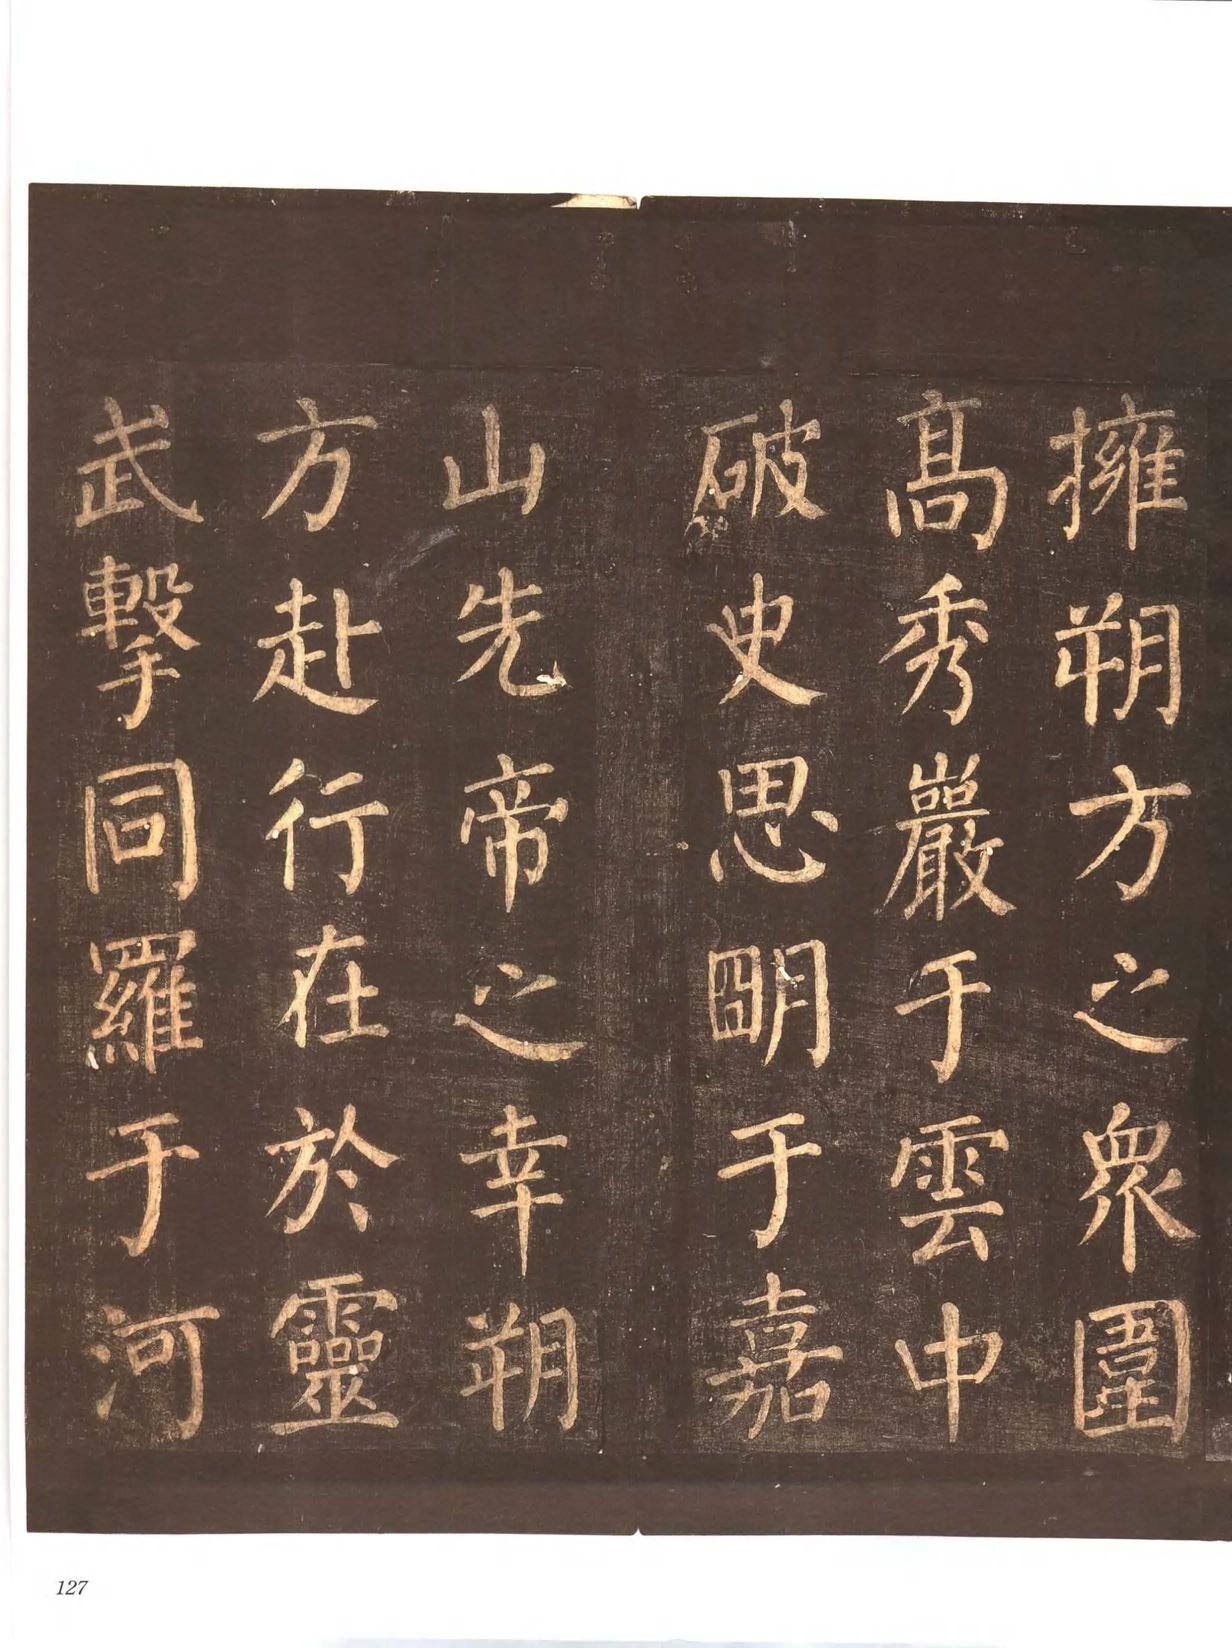 擁朔方之衆圍
髙秀巖于雲中
破史思明于嘉
山先帝之幸朔
方赴行在於靈
武擊同羅于河
127